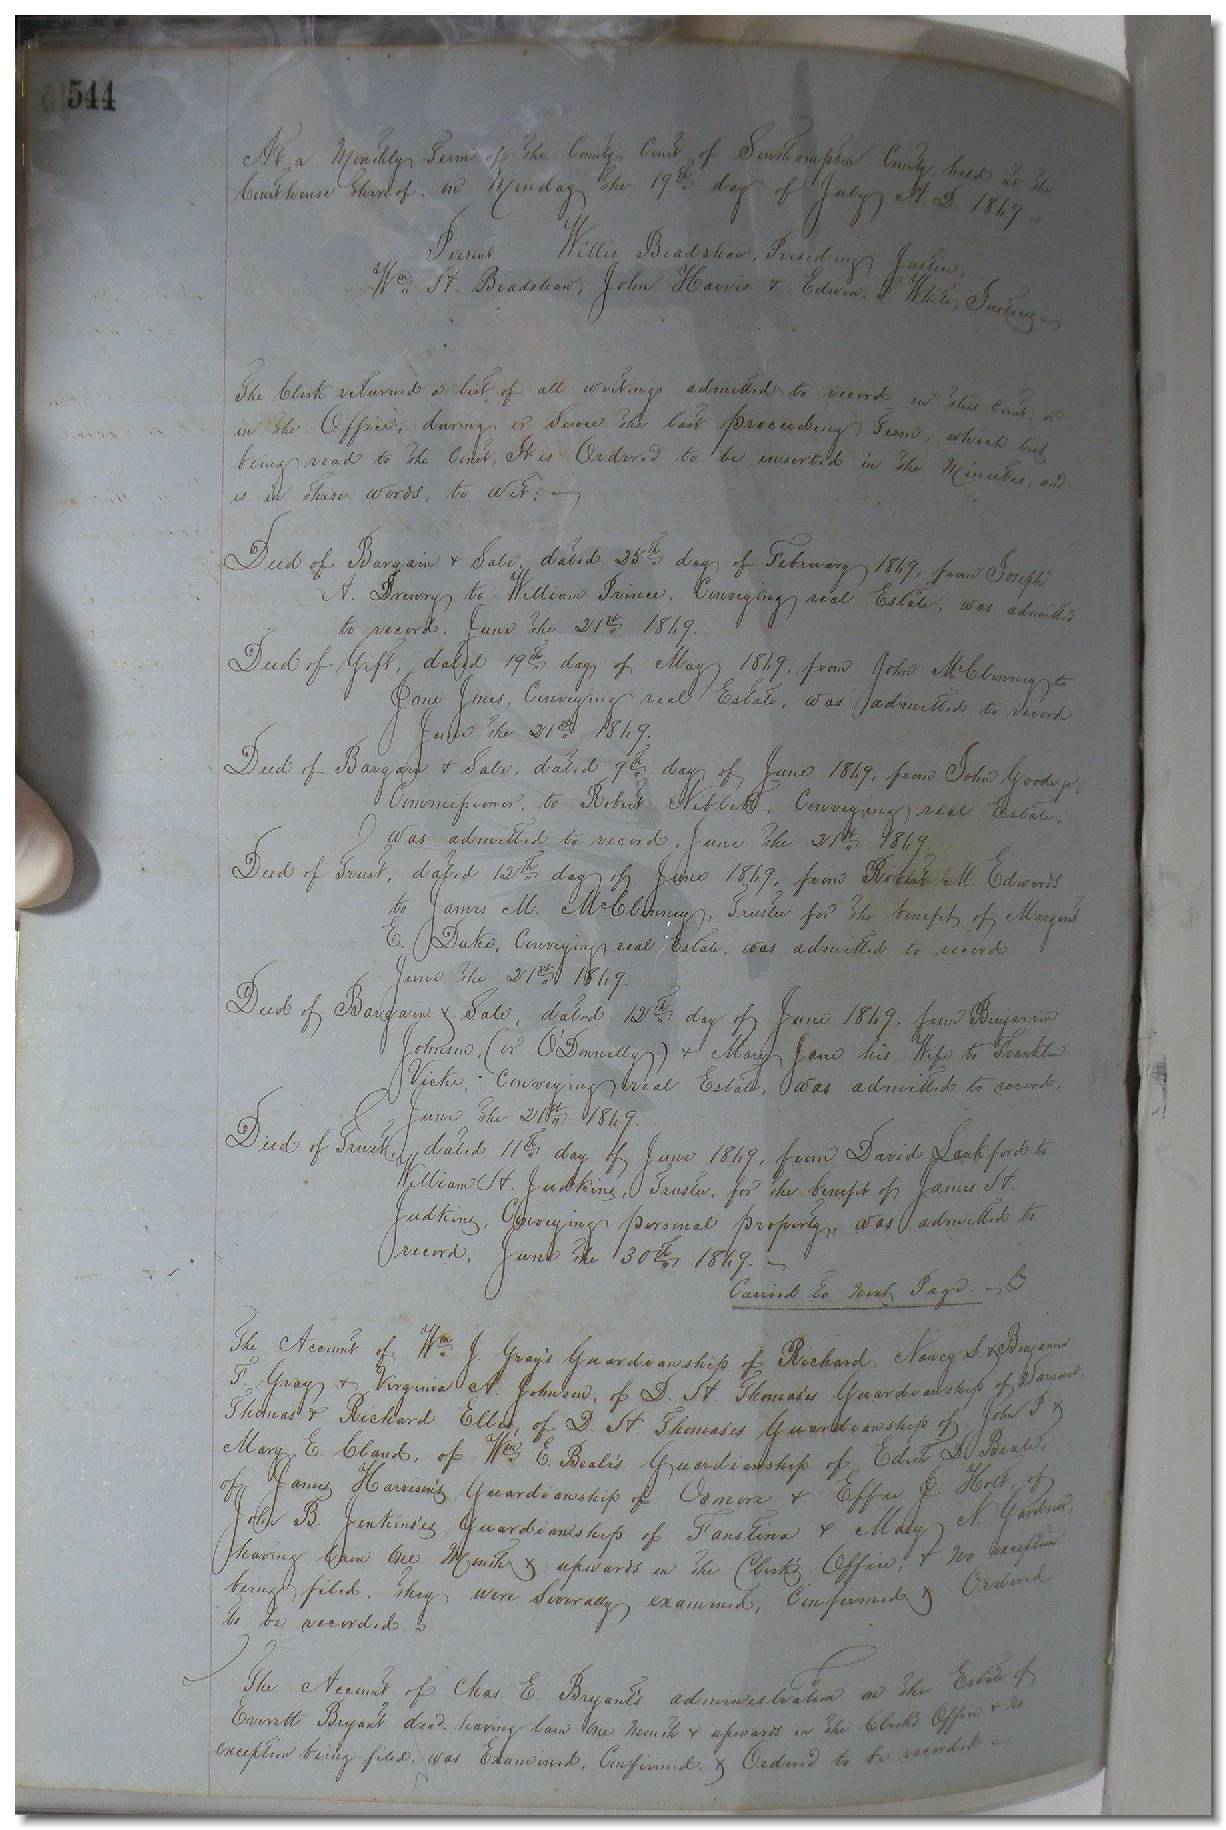 544
At a Monthly Term of the County Court of Southampton County, held at the
Courthouse thereof, on Monday the 19th day of July A. D. 1869
Present Willis Bradshaw, Presiding Justice,
Wm H. Bradshaw, John Harris & Edwin White, Justices
The Clerk returned a list of all writings admitted to record in this Court, or
in the Office, during or since the last preceeding Term, which list
being read to the Court, It is Ordered to be inserted in the Minutes, and
is in these words, to wit:
Deed of Bargain & Sale, dated 25th day of February 1869, from Joseph
A. Drewry to William Prince, Conveying real Estate, was admitted
to record, June the 21st 1869.
Deed of Gift, dated 19th day of May 1869, from John McClenney to
Jane Jones, Conveying real Estate, was admitted to record
June the 21st 1869.
Deed of Bargain & Sale, dated 9th day of June 1869, from John Goode jr,
Commissioner, to Robert Niblett, Conveying real Estate,
was admitted to record, June the 21st 1869.
Deed of Trust, dated 12th day of June 1869, from M. Edwards
to James M. McClenney, Trustee for the benefit of Margaret
E. Duke, Conveying real Estate, was admitted to record
June the 21st 1869.
Deed of Bargain & Sale, dated 12th day of June 1869, from Benjamin
Johnson, (or O'Donnelly) & Mary Jane his Wife to Franklin
Vicke, Conveying real Estate, was admitted to record,
June the 21st 1869.
Deed of Trust, dated 11th day of June 1869, from David Lankford to
William H. Judkins, Trustee, for the benefit of James H.
Judkins, Conveying personal property, was admitted to
record, June the 30th 1869.
Carried to next Page.
The Account of Wm J. Gray's Guardianship of Richard, Nancy S. & Benjamin
F. Gray & Virginia A. Johnson, of D. H. Thomas's Guardianship of Samuel
Thomas & Richard Ellis, of D. H. Thomas's Guardianship of John P &
Mary E. Claud, of Wm E. Beale's Guardianship of Edith D. Beale,
of James Harrison's Guardianship of & Effie J. Holt, of
John B. Jenkins's Guardianship of Faustina & Mary N. Gardner,
having lain One Month & upwards in the Clerk's Office, & no exception
being filed, they were severally examined, Confirmed & Ordered
to be recorded.
The Account of Chas. E. Bryant's administration on the Estate of
Everett Bryant decd. having lain One Month & upwards in the Clerk's Office & no
exception being filed, was Examined, Confirmed, & Ordered to be recorded